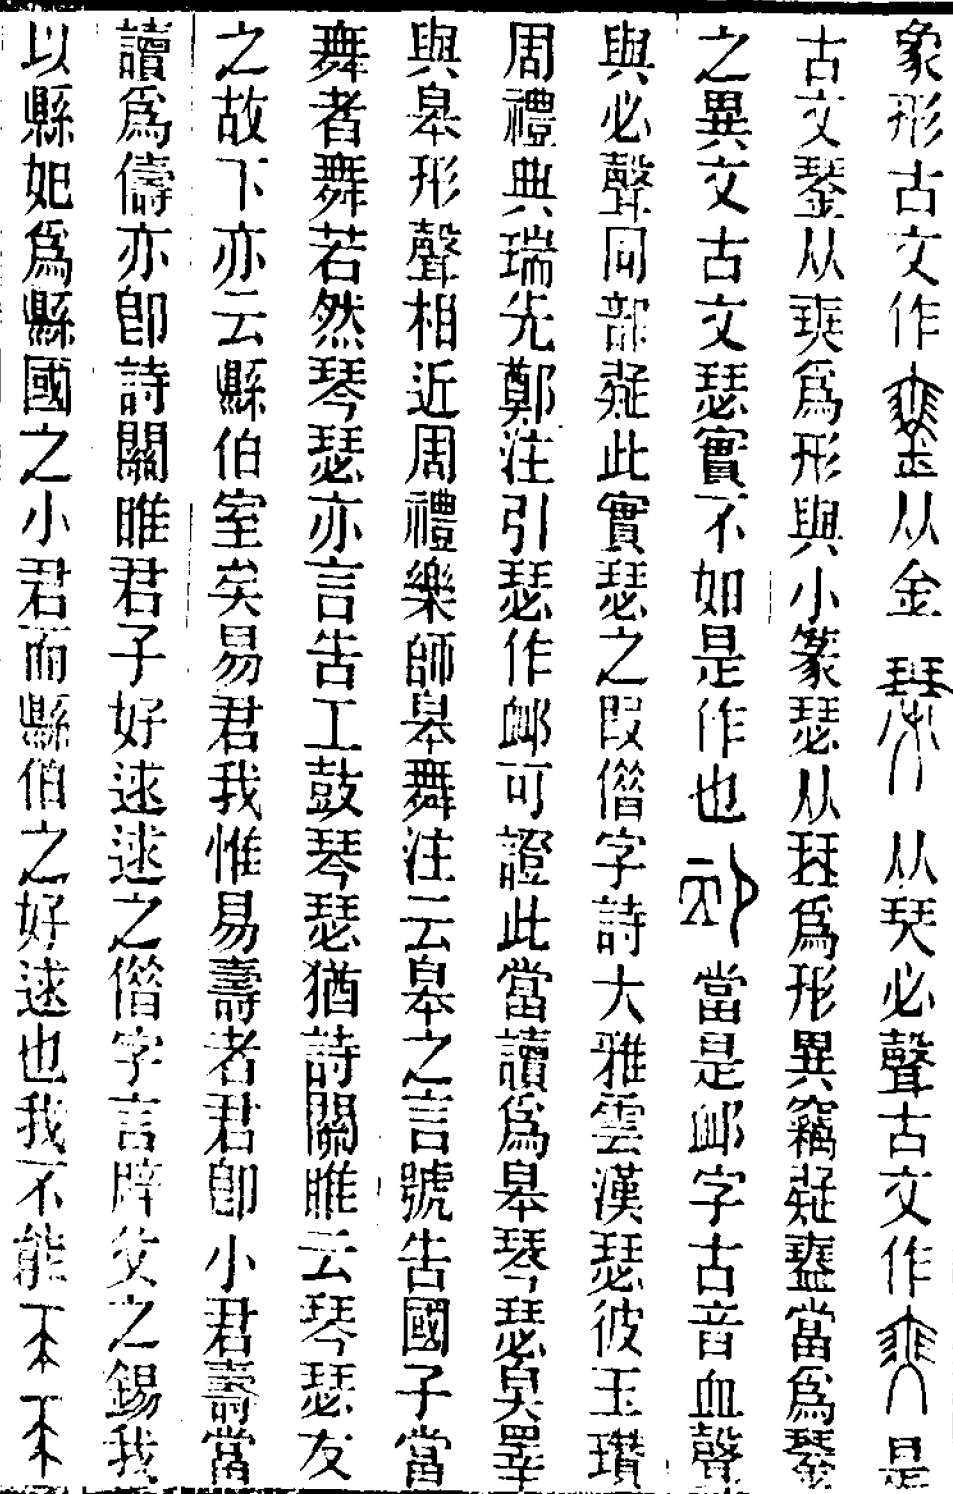 象形古文作從金从珡必聲古文作是
古文銺从㻎爲形與小篆瑟从珡爲形異竊疑當爲
之異文古文瑟實不如是作也當是卹字古音血聲
與必聲同部疑此實瑟之叚僣字詩大雅雲漢瑟彼玉瓚
周禮典瑞先鄭注引瑟作卹可證此當讀爲皋琴瑟臭睪
與皋形聲相近周禮樂師皋舞注云皋之言號告國子當
舞者舞若然琴瑟亦言告工鼓琴瑟猶詩關雎云琴瑟友
之故下亦云縣伯室矣易君我惟易壽者君卽小君壽當
讀爲儔亦卽詩關雎君子好逑逑之僣字言辟父之錫我
以縣妃爲縣國之小君而縣伯之好逑也我不能